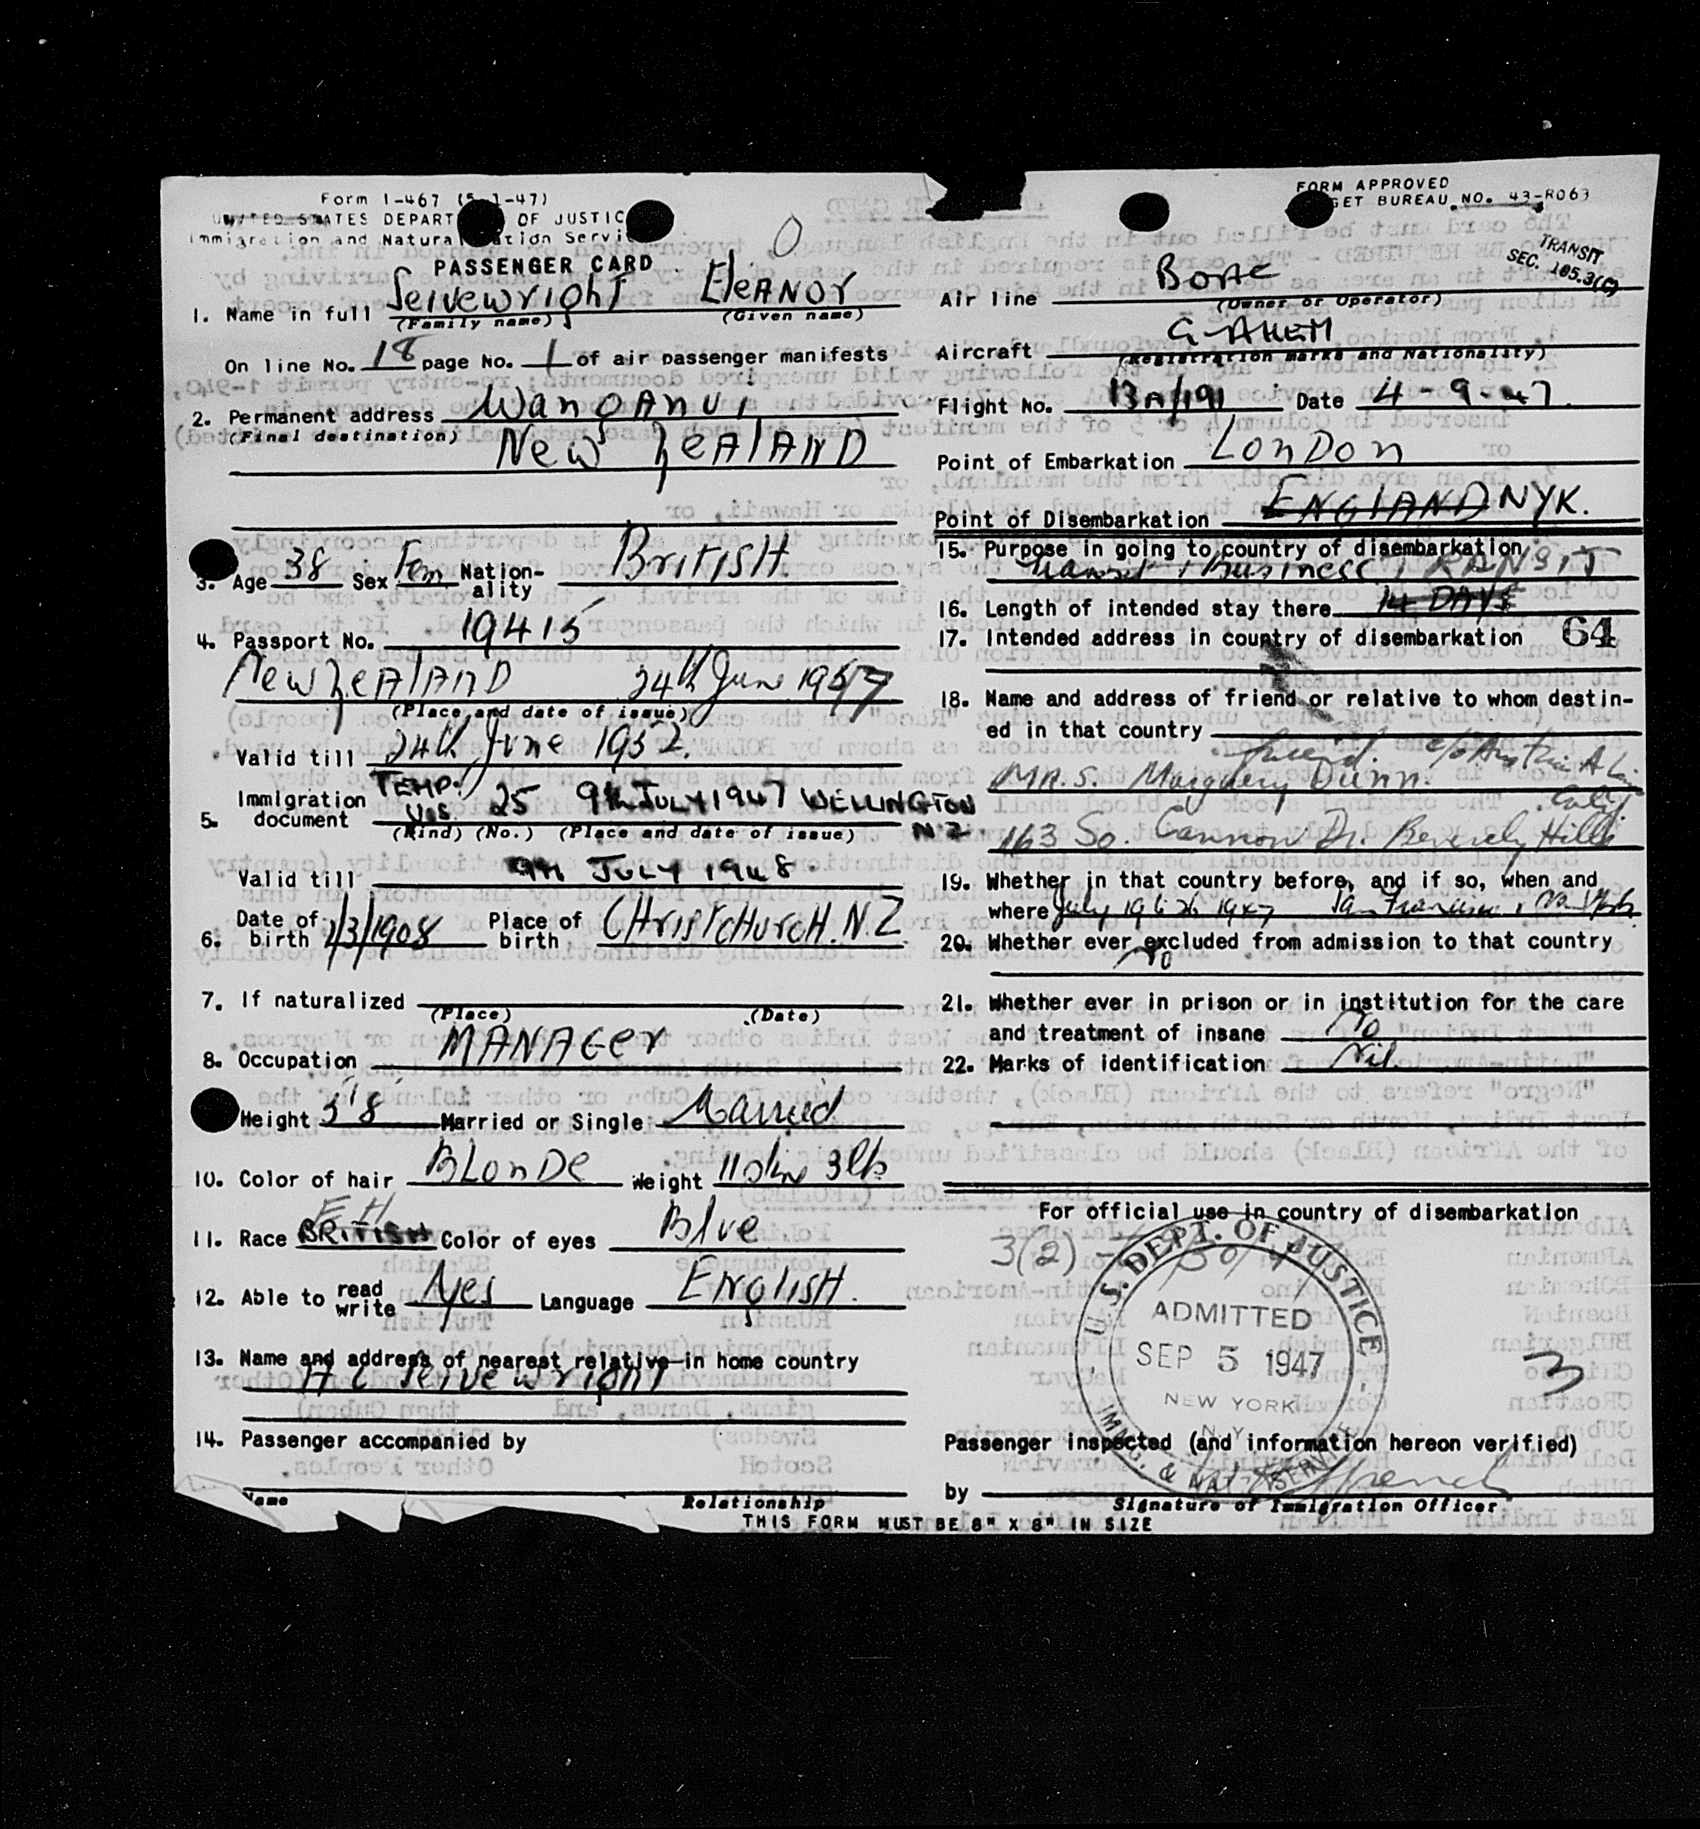 Form I-467 (5-1-47)
UNITED STATES DEPART OF JUSTIC
Immigration and Natura ation Servi
FORM APPROVED
GET BUREAU NO. 43-R063
TRANSIT
SEC. 105.3(C)
PASSENGER CARD
1. Name in full Seivewright Eleanor
(Family name) (Given name)
On line No. 18 page No. 1 of air passenger manifests
2. Permanent address Wanganui
(Final destination) New Zealand
3. Age 38 Sex Fem Nation-ality British
4. Passport No. 19415
New Zealand 24th June 1947
(Place and date of issue)
Valid till 24th June 1952.
5. Immigration document TEMP. VIS. 25 9th JULY 1947 WELLINGTON N Z.
(Kind) (No.) (Place and date of issue)
Valid till 9th JULY 1948.
6. Date of birth 1/3/1908 Place of birth CHristCHurcH. N. Z
7. If naturalized
(Place) (Date)
8. Occupation MANAGer
Height 5'8 Married or Single Married
10. Color of hair BLonDe Weight 11 3 lbs
11. Race BRITISH Color of eyes Blue
12. Able to read write Yes Language EnglisH.
13. Name and address of nearest relative in home country
H C Seivewright
14. Passenger accompanied by
Name Relationship
Air line BOAC
(Owner or Operator)
Aircraft G-AHEM
(Registration marks and Nationality)
Flight No. 13A/191 Date 4-9-47.
Point of Embarkation LonDon
Point of Disembarkation ENGLAND NYK.
15. Purpose in going to country of disembarkation
Transit & Business TRANSIT
16. Length of intended stay there 14 DAYS
17. Intended address in country of disembarkation 64
18. Name and address of friend or relative to whom destin-
ed in that country friend. c/o
Mrs. Margery Dunn.
Calif
163 So. Cannon Dr. Beverely Hills
19. Whether in that country before, and if so, when and
where July 1947 San Francisco,
20. Whether ever excluded from admission to that country
No
21. Whether ever in prison or in institution for the care
and treatment of insane No
22. Marks of identification Nil.
For official use in country of disembarkation
3(2)
U.S. DEPT. OF JUSTICE
ADMITTED
SEP 5 1947
NEW YORK
N.Y.
IMMIG. & NAT. SERVICE
3
Passenger inspected (and information hereon verified)
by
Signature of Immigration Officer
THIS FORM MUST BE 8" X 8" IN SIZE